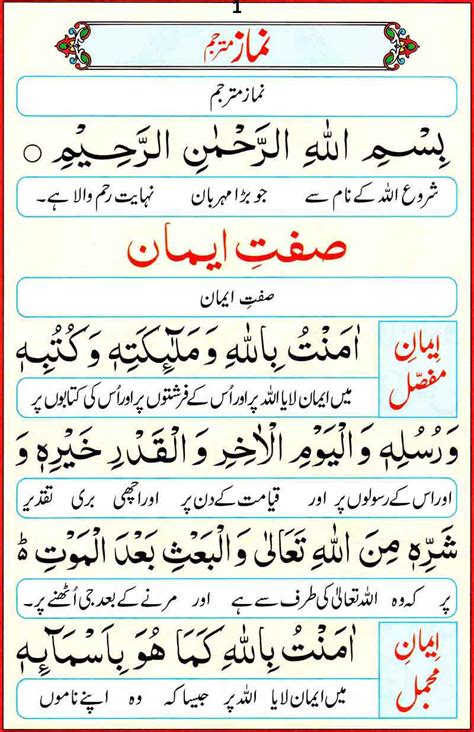 1
نماز مترجم
نماز مترجم
بِسْمِ اللهِ الرَّحْمٰنِ الرَّحِيْمِ ○
شروع اللہ کے نام سے جو بڑا مہربان نہایت رحم والا ہے۔
صفتِ ایمان
صفتِ ایمان
ایمانِ مفصّل
اٰمَنْتُ بِاللهِ وَمَلٰٓئِكَتِهٖ وَكُتُبِهٖ
میں ایمان لایا اللہ پر اور اُس کے فرشتوں پر اور اُس کی کتابوں پر
وَرُسُلِهٖ وَالْيَوْمِ الْاٰخِرِ وَالْقَدْرِ خَيْرِهٖ وَ
اور اس کے رسولوں پر اور قیامت کے دن پر اور اچھی بری تقدیر
شَرِّهٖ مِنَ اللهِ تَعَالٰى وَالْبَعْثِ بَعْدَ الْمَوْتِ ط
پر کہ وہ اللہ تعالیٰ کی طرف سے ہے اور مرنے کے بعد جی اُٹھنے پر۔
ایمانِ مجمل
اٰمَنْتُ بِاللهِ كَمَا هُوَ بِاَسْمَآئِهٖ
میں ایمان لایا اللہ پر جیسا کہ وہ اپنے ناموں